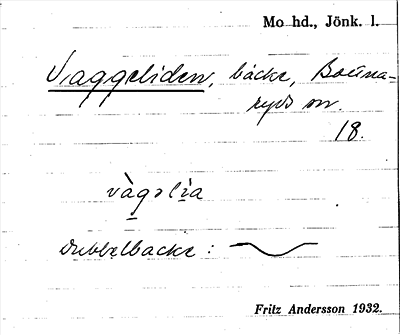 Mo hd., Jönk. l.
Vaggeliden, backe, Bottna-
ryds sn.
18.
vàgəlia
Dubbelbacke:
Fritz Andersson 1932.